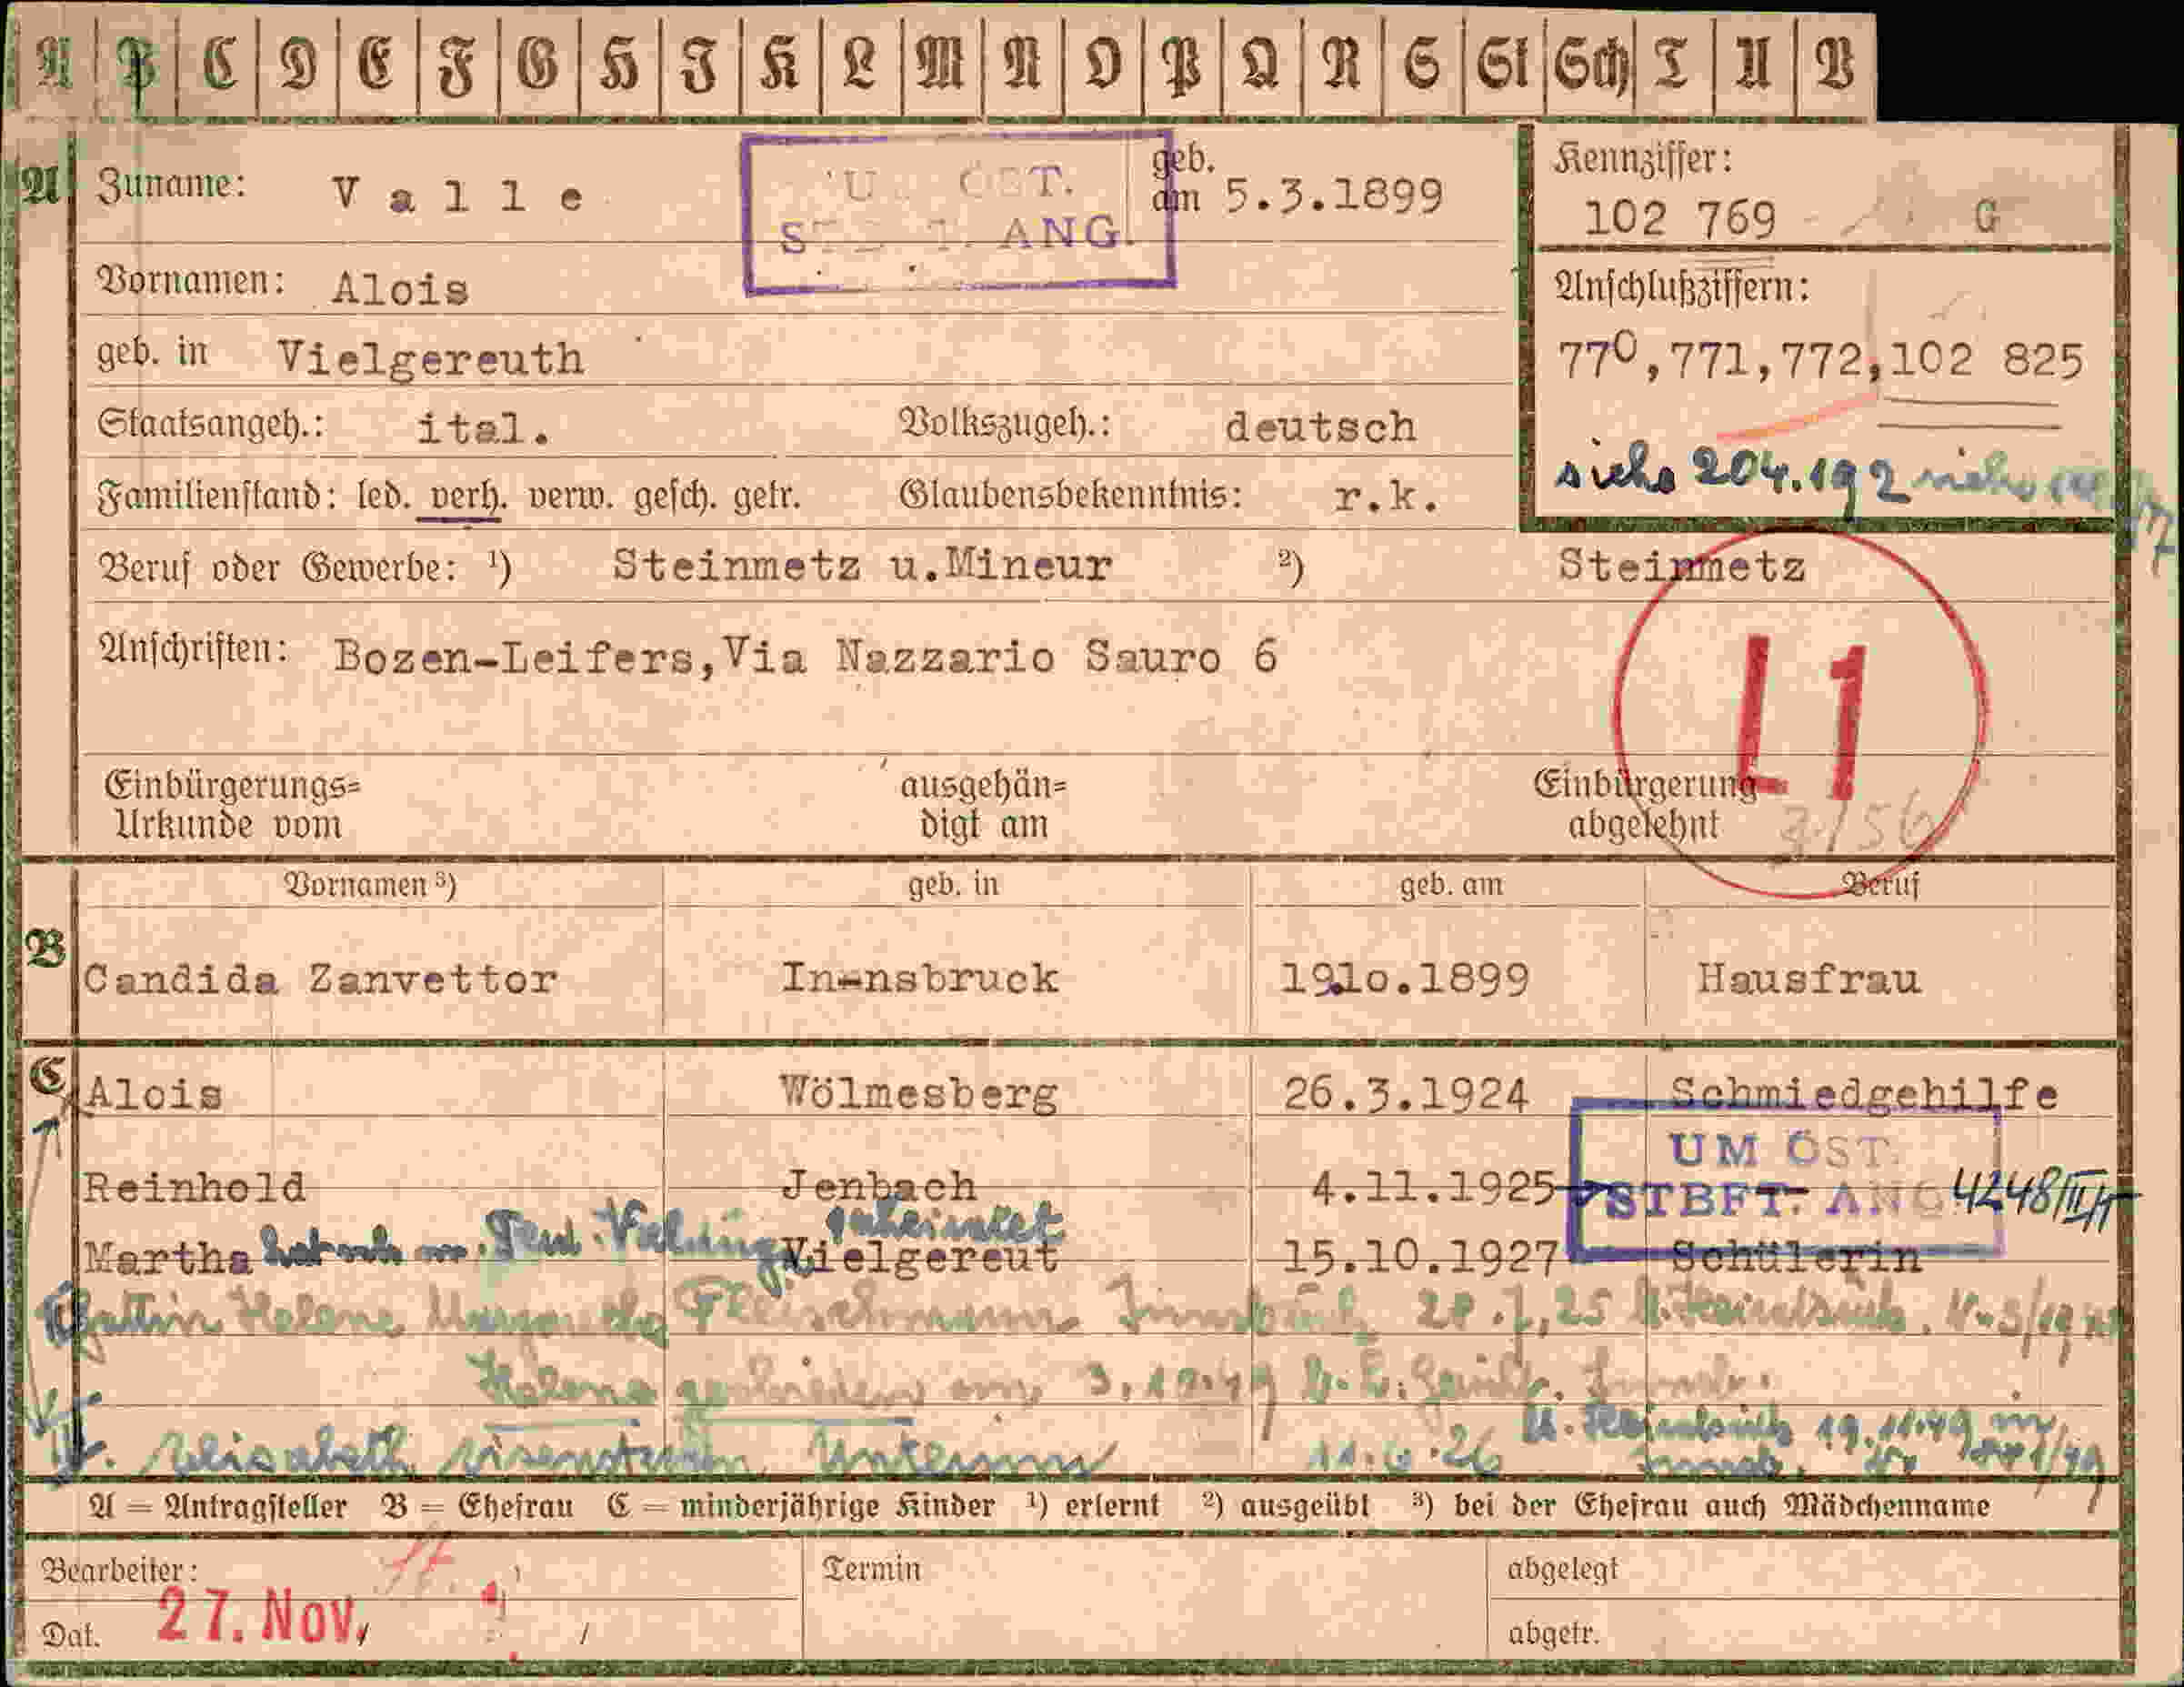 A B C D E F G H I K L M N O P Q R S St Sch T U V
A Zuname: Valle geb. am 5.3.1899
ÖST.
ANG.
Kennziffer:
102 769 G
Vornamen: Alois
Anschlußziffern:
770,771,772,102 825
siehe 204.192 siehe
geb. in Vielgereuth
Staatsangeh.: ital. Volkszugeh.: deutsch
Familienstand: led. verh. verw. gesch. getr. Glaubensbekenntnis: r.k.
Beruf oder Gewerbe: ¹) Steinmetz u.Mineur ²) Steinmetz
Anschriften: Bozen-Leifers,Via Nazzario Sauro 6
L1
Einbürgerungs= Urkunde vom
ausgehän= digt am
Einbürgerung abgelehnt
3/56
Vornamen ³) geb. in geb. am Beruf
B Candida Zanvettor In-nsbruck 19.10.1899 Hausfrau
C Alois Wölmesberg 26.3.1924 Schmiedgehilfe
UM ÖST.
STBFT. ANG 4248/II/
Reinhold Jenbach 4.11.1925
Martha hat sich geheiratet Vielgereut 15.10.1927 Schülerin
Gattin Helene Fleischmann Innsbruck 28.7.25
Helene geschieden am 3.12.49
Elisabeth 11.6.26 19.11.49 in
A = Antragsteller B = Ehefrau C = minderjährige Kinder ¹) erlernt ²) ausgeübt ³) bei der Ehefrau auch Mädchenname
Bearbeiter: Termin abgelegt
Dat. 27. Nov. abgetr.